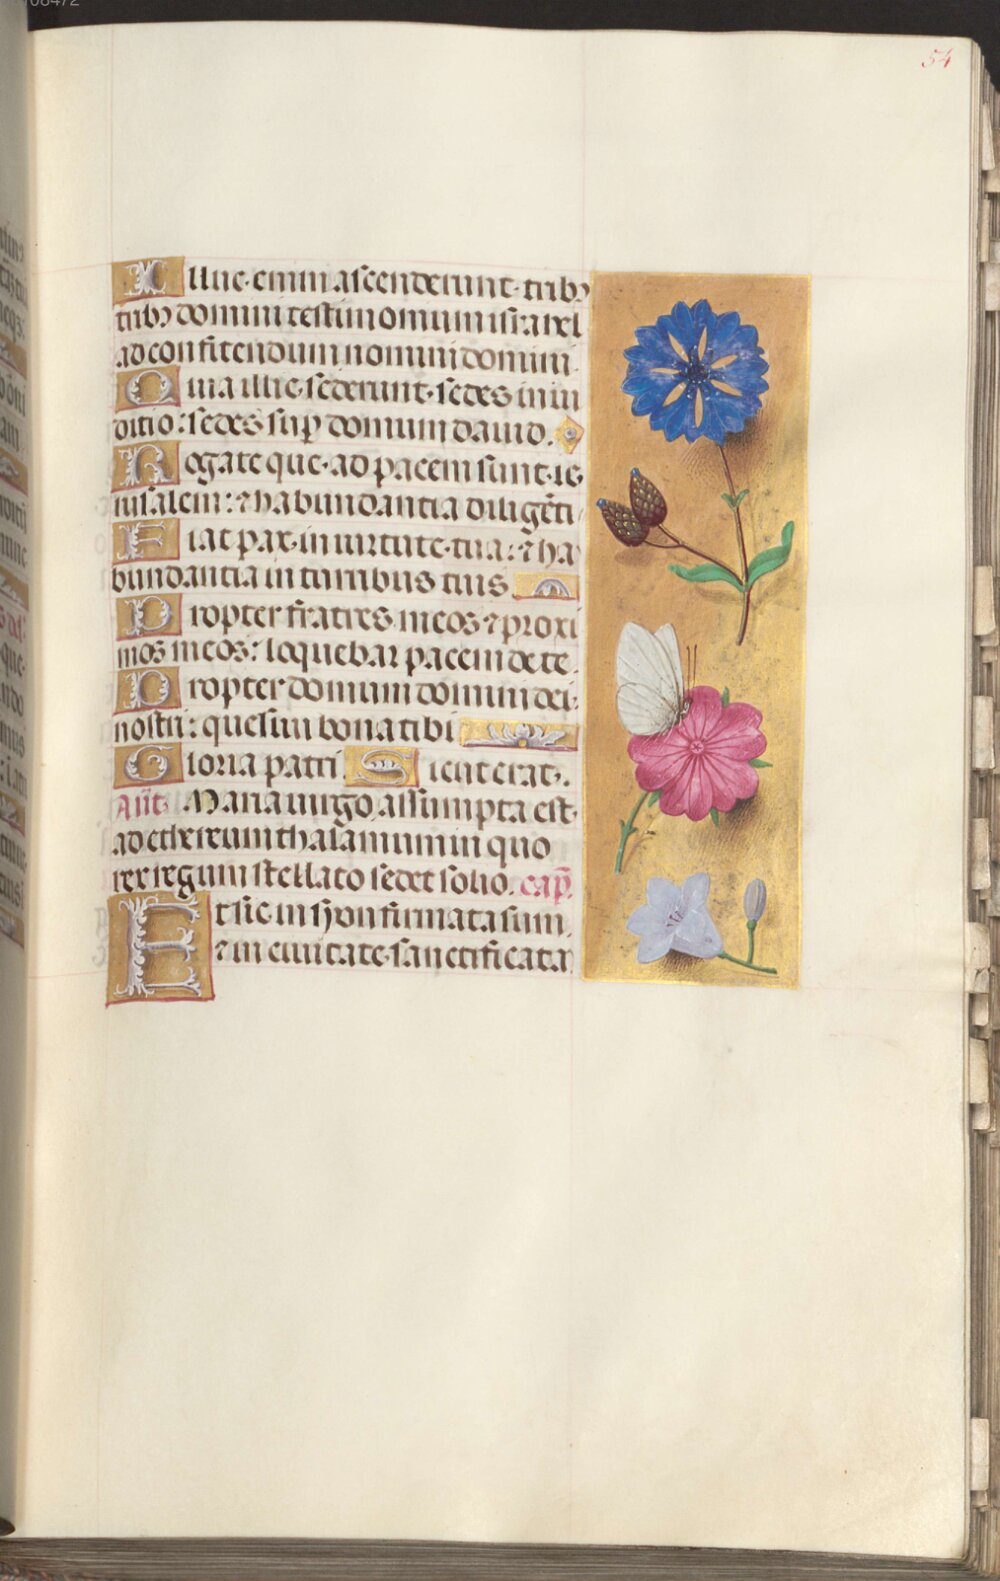 54
Illuc enim ascenderunt tribꝰ
tribꝰ domini testimonium israhel
ad confitendum nomini domini.
Quia illic sederunt sedes in iu
ditio: sedes sup̱ domum dauid.
Rogate que ad pacem sunt ie
rusalem: ⁊ habundantia diligẽti
Fiat pax in uirtute tua: ⁊ ha
bundantia in turribus tuis
Propter fratres meos ⁊ proxi
mos meos: loquebar pacem de te.
Propter domum domini dei
nostri: quesiui bona tibi
Gloria patri. Sicut erat.
Añt. Maria uirgo assumpta est
ad ethereum thalamum in quo
rex regum stellato sedet solio. cap̄.
Et sic in syon firmata sum.
⁊ in ciuitate sanctificata